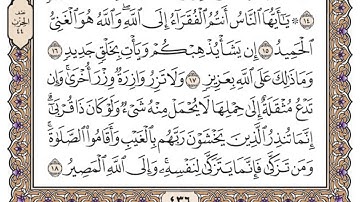 ١٤ ۞ يَـٰٓأَيُّهَا ٱلنَّاسُ أَنتُمُ ٱلۡفُقَرَآءُ إِلَى ٱللَّهِۖ وَٱللَّهُ هُوَ ٱلۡغَنِيُّ
ٱلۡحَمِيدُ ١٥ إِن يَشَأۡ يُذۡهِبۡكُمۡ وَيَأۡتِ بِخَلۡقٖ جَدِيدٖ ١٦
وَمَا ذَٰلِكَ عَلَى ٱللَّهِ بِعَزِيزٖ ١٧ وَلَا تَزِرُ وَازِرَةٞ وِزۡرَ أُخۡرَىٰۚ وَإِن
تَدۡعُ مُثۡقَلَةٌ إِلَىٰ حِمۡلِهَا لَا يُحۡمَلۡ مِنۡهُ شَيۡءٞ وَلَوۡ كَانَ ذَا قُرۡبَىٰٓۗ
إِنَّمَا تُنذِرُ ٱلَّذِينَ يَخۡشَوۡنَ رَبَّهُم بِٱلۡغَيۡبِ وَأَقَامُواْ ٱلصَّلَوٰةَۚ
وَمَن تَزَكَّىٰ فَإِنَّمَا يَتَزَكَّىٰ لِنَفۡسِهِۦۚ وَإِلَى ٱللَّهِ ٱلۡمَصِيرُ ١٨
٤٣٦